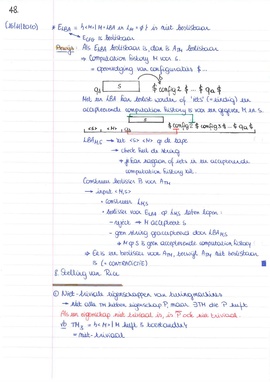 48.
(26/11/2020)
• E_LBA = {<M> | M = LBA en L_M = ∅} is niet beslisbaar
E_CFG is beslisbaar
Bewijs: Als E_LBA beslisbaar is, dan is A_TM beslisbaar
⇒ Computation history M voor s.
= opeenvolging van configuraties $...
s
q_s $ config 2 $ ... $ q_a $
Het en LBA kan testen of 'iets' (= eindig) een
accepterende computation history is voor een gegeven M en s.
s
$ config 2 $ config 3 $ ... $ q_a $
LBA_M,s → op de tape
→ check heel de string
een accepterende
computation history
Construeer beslisser B voor A_TM
→ input <M,s>
- construeer
- beslisser voor E_LBA op laten lopen:
- reject ⇒ M accepteert s
- geen string geaccepteerd door LBA_M,s
⇒ M op s is geen accepterende computation history
⇒ Er is een beslisser voor A_TM, terwijl A_TM niet beslisbaar
is (= contradictie)
8. Stelling van Rice
① Niet-triviale eigenschappen van turingmachines
→ Niet alle TM hebben eigenschap P, maar ∃TM die P heeft
Als een eigenschap niet triviaal is, is P̄ ook niet triviaal.
= {<M> | M heeft 3 toestanden}
= niet-triviaal